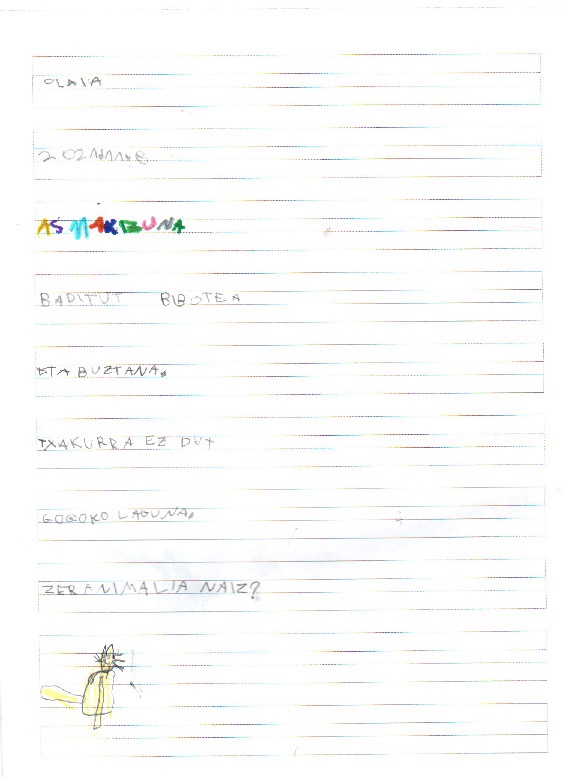 OLAIA
ASMAKIZUNA
BADITUT BIBOTEA
ETA BUZTANA.
TXAKURRA EZ DUT
GOGOKO LAGUNA.
ZER ANIMALIA NAIZ?